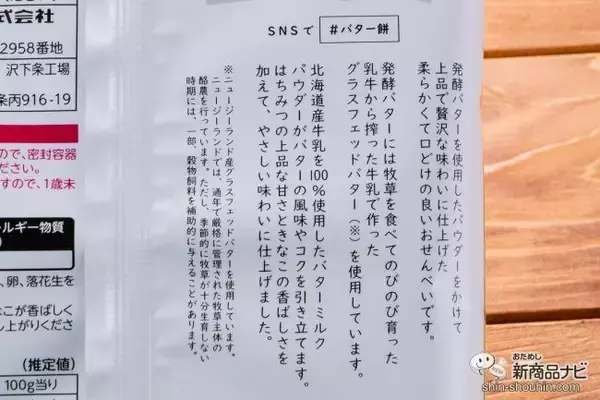 SNSで #バター餅
発酵バターを使用したパウダーをかけて
上品で贅沢な味わいに仕上げた
柔らかくて口どけの良いおせんべいです。
発酵バターには牧草を食べてのびのび育った
乳牛から搾った牛乳で作った
グラスフェッドバター(※)を使用しています。
北海道産牛乳を100%使用したバターミルク
パウダーがバターの風味やコクを引き立てます。
はちみつの上品な甘さときなこの香ばしさを
加えて、やさしい味わいに仕上げました。
※ニュージーランド産グラスフェッドバターを使用しています。
ニュージーランドでは、通年で厳格に管理された牧草主体の
酪農を行っています。ただし、季節的に牧草が十分生育しない
時期には、一部、穀物飼料を補助的に与えることがあります。
式会社
2958番地
沢下条工場
条丙916-19
ので、密封容器
ださい。
すので、1歳未
ルギー物質
、卵、落花生を
なこが香ばしく
し上がりくださ
(推定値)
100g当り
おためし
新商品ナビ
shin-shouhin.com